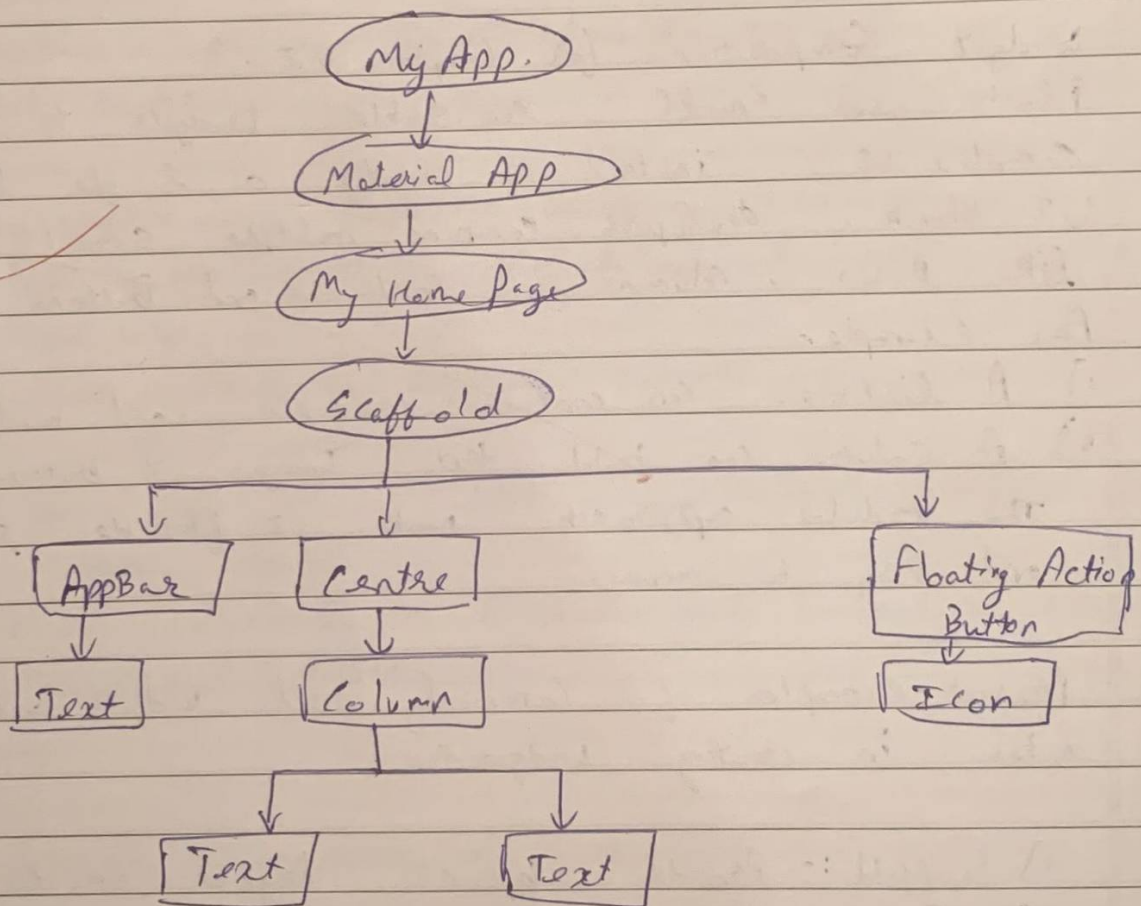 My App.
Material App
My Home Page
Scaffold
AppBar
Centre
Floating Action
Button
Text
Column
Icon
Text
Text